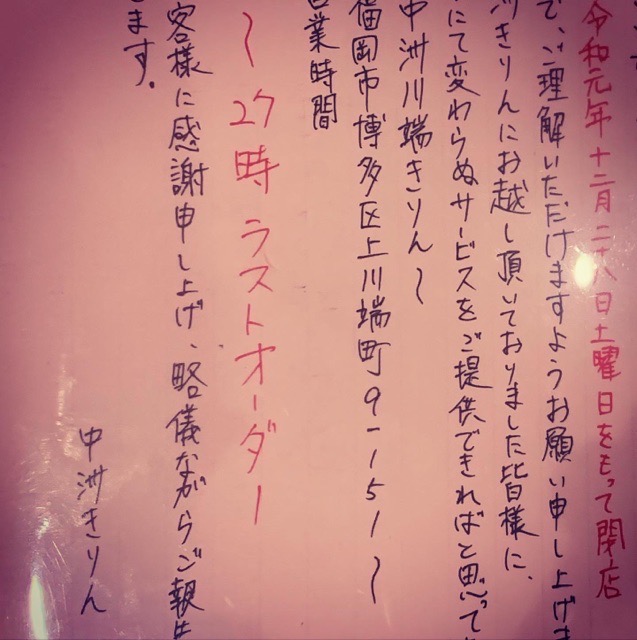 令和元年十二月二十八日土曜日をもって閉店
で、ご理解いただけますようお願い申し上げま
きりんにお越し頂いておりました皆様に、
にて変わらぬサービスをご提供できればと思って
中洲川端きりん〜
福岡市博多区上川端町9-151〜
営業時間
〜27時ラストオーダー
客様に感謝申し上げ、略儀ながらご報告
ます。
中洲きりん